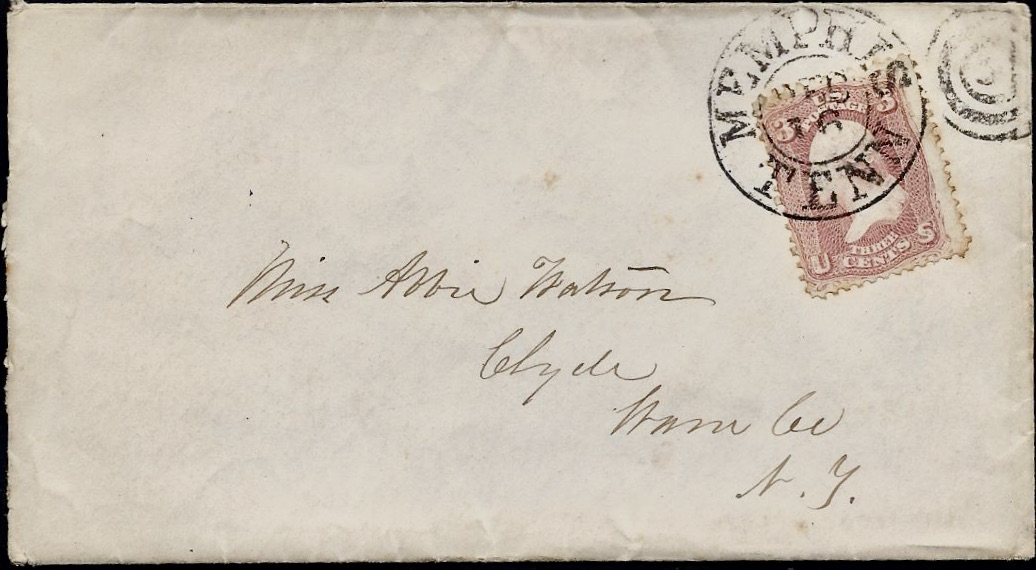 MEMPHIS
TENN
DEC
16
3 3
U.S. POSTAGE
THREE
U CENTS S
Miss Abbie Watson
Clyde
Wayne Co
N.Y.